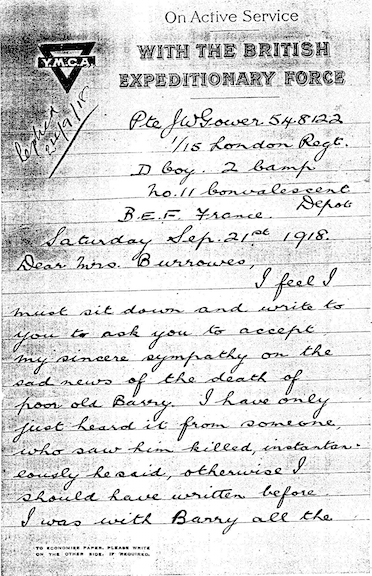 On Active Service
WITH THE BRITISH
EXPEDITIONARY FORCE
Y.M.C.A.
Replied
24/9/18
Pte J W Gower 548122
1/15 London Regt.
D Coy. 2 Camp
No. 11 Convalescent
Depot
B.E.F. France.
Saturday Sep. 21st 1918.
Dear Mrs. Burrowes,
I feel I
must sit down and write to
you to ask you to accept
my sincere sympathy on the
sad news of the death of
poor old Barry. I have only
just heard it from someone,
who saw him killed, instantan-
eously he said, otherwise I
should have written before
I was with Barry all the
TO ECONOMISE PAPER, PLEASE WRITE
ON THE OTHER SIDE, IF REQUIRED.